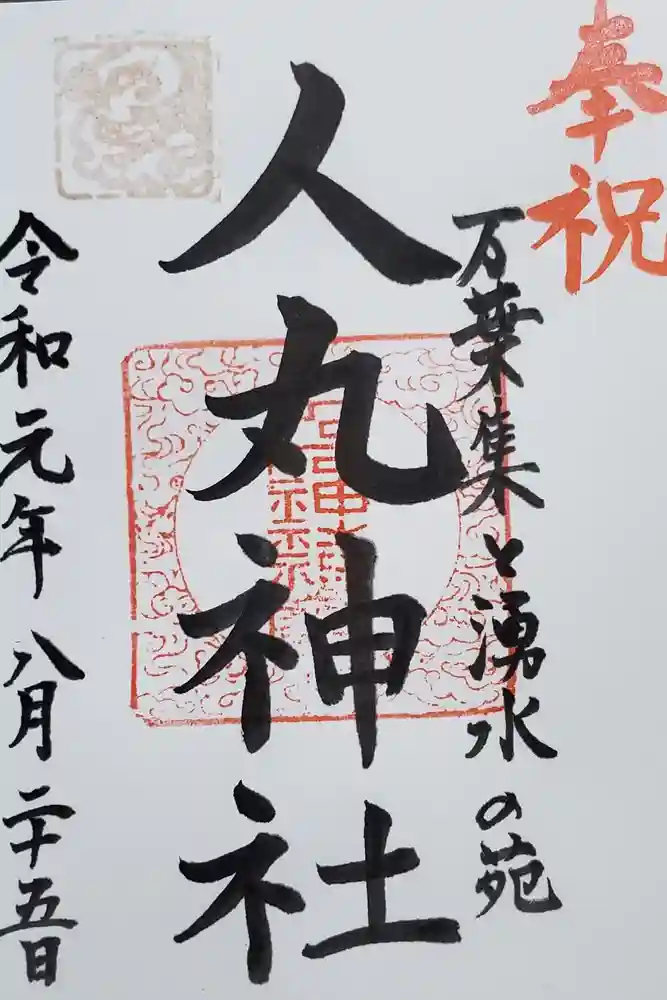 奉祝
万葉集と湧水の苑
人丸神社
令和元年八月二十五日